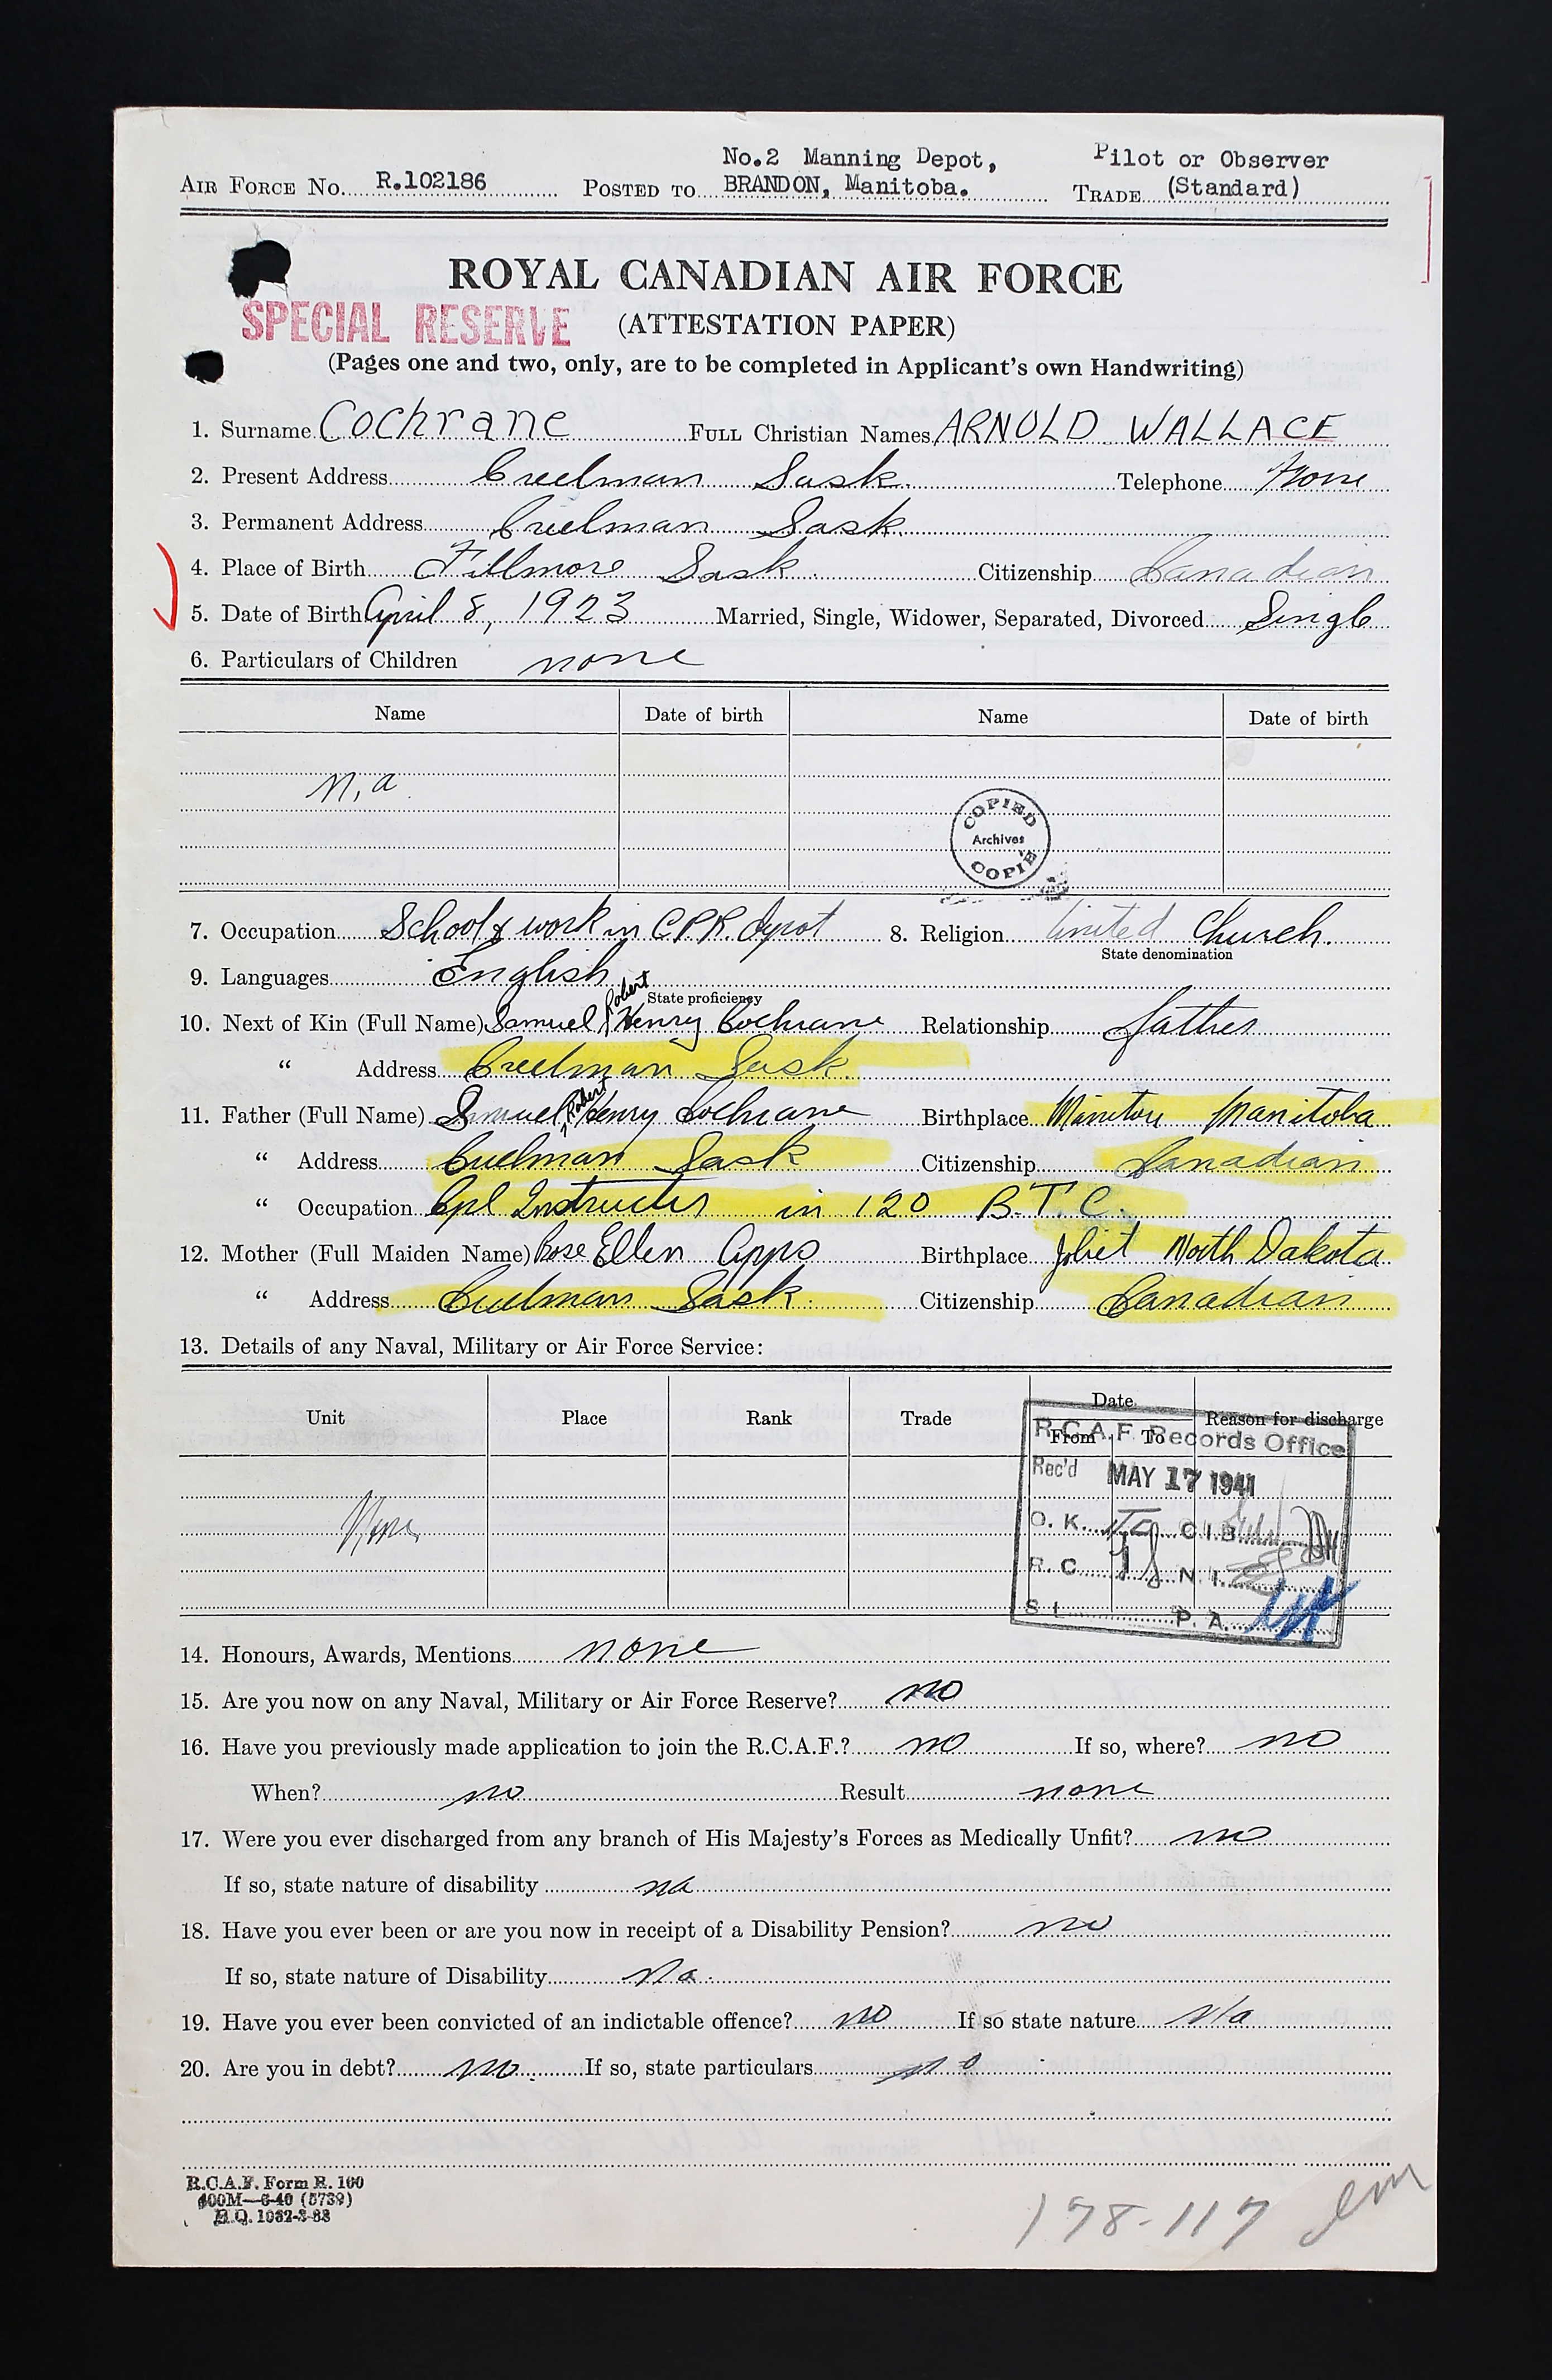 No.2 Manning Depot, Pilot or Observer
AIR FORCE No. R.102186 POSTED TO BRANDON, Manitoba. TRADE (Standard)
ROYAL CANADIAN AIR FORCE
SPECIAL RESERVE (ATTESTATION PAPER)
(Pages one and two, only, are to be completed in Applicant's own Handwriting)
1. Surname Cochrane FULL Christian Names ARNOLD WALLACE
2. Present Address Creelman Sask. Telephone None
3. Permanent Address Creelman Sask.
4. Place of Birth Fillmore Sask. Citizenship Canadian
5. Date of Birth April 8, 1923 Married, Single, Widower, Separated, Divorced Single
6. Particulars of Children none
Name Date of birth Name Date of birth
n,a
COPIED
Archives
COPIÉ
7. Occupation School & work in C.P.R. depot 8. Religion United Church.
State denomination
9. Languages English
State proficiency
10. Next of Kin (Full Name) Samuel Robert Henry Cochrane Relationship father
" Address Creelman Sask.
11. Father (Full Name) Samuel Robert Henry Cochrane Birthplace Manitou Manitoba
" Address Creelman Sask Citizenship Canadian
" Occupation Cpl Instructor in 120 B.T.C.
12. Mother (Full Maiden Name) Rose Ellen Apps Birthplace Joliet North Dakota
" Address Creelman Sask. Citizenship Canadian
13. Details of any Naval, Military or Air Force Service:
Unit Place Rank Trade Date Reason for discharge
From To
R.C.A.F. Records Office
Rec'd MAY 17 1941
None
O. K. C.I.B.
R. C. N. I.
S I. P. A.
14. Honours, Awards, Mentions none
15. Are you now on any Naval, Military or Air Force Reserve? no
16. Have you previously made application to join the R.C.A.F.? no If so, where? no
When? no Result none
17. Were you ever discharged from any branch of His Majesty's Forces as Medically Unfit? no
If so, state nature of disability na
18. Have you ever been or are you now in receipt of a Disability Pension? no
If so, state nature of Disability Na.
19. Have you ever been convicted of an indictable offence? no If so state nature n/a
20. Are you in debt? no. If so, state particulars no
R.C.A.F. Form R. 100
400M—6-40 (5739)
H.Q. 1062-3-88
178-117